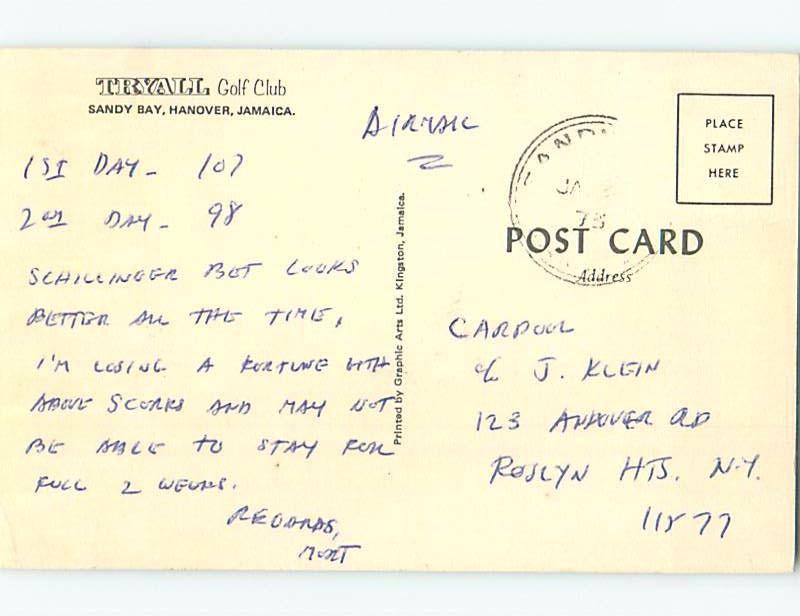 TRYALL Golf Club
SANDY BAY, HANOVER, JAMAICA.
AIRMAIL
1ST DAY - 107
2ND DAY - 98
SCHILLINGER BET LOOKS
BETTER ALL THE TIME,
I'M LOSING A FORTUNE WITH
ABOVE SCORES AND MAY NOT
BE ABLE TO STAY FOR
FULL 2 WEEKS.
REGARDS,
MORT
Printed by Graphic Arts Ltd. Kingston, Jamaica.
PLACE
STAMP
HERE
JA
POST CARD
Address
CARPOOL
c/o J. KLEIN
123 ANDOVER RD
ROSLYN HTS. N.Y.
11577